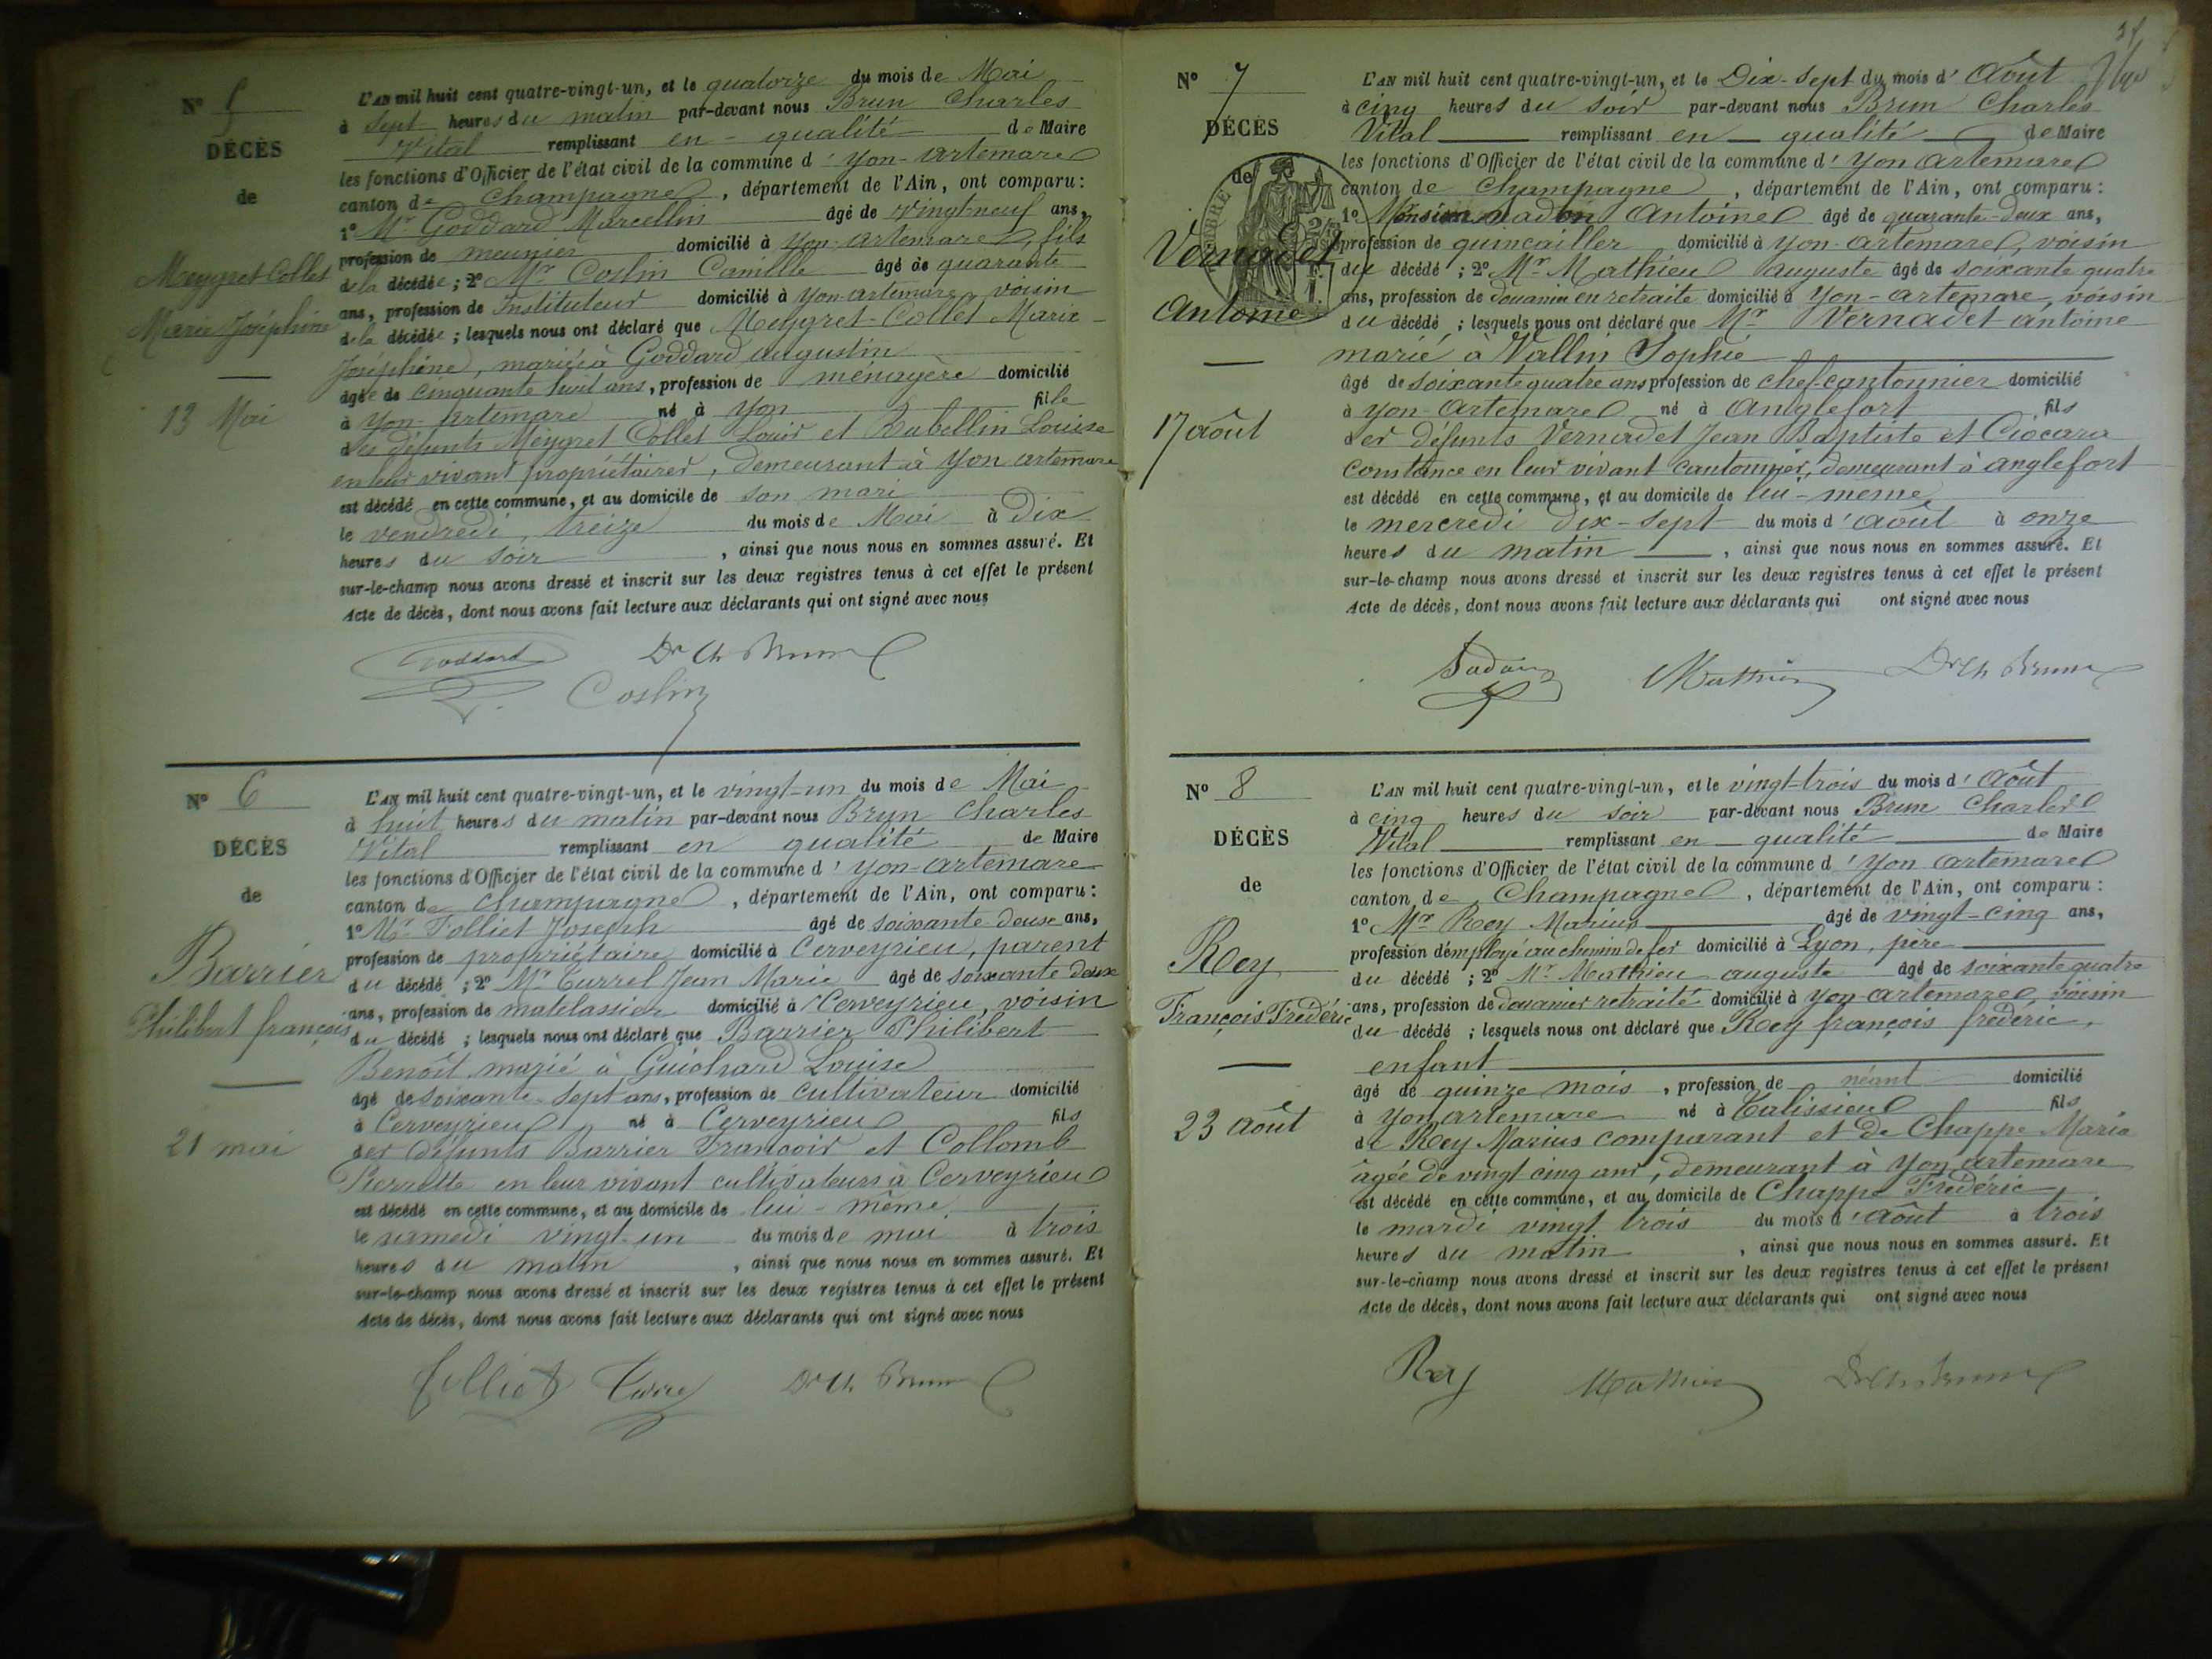 N° 5
DÉCÈS
de
Meygret-Collet
Marie Joséphine
13 Mai
L'AN mil huit cent quatre-vingt-un, et le quatorze du mois de Mai
à Sept heures du matin par-devant nous Brun Charles
Vital remplissant en qualité de Maire
les fonctions d'Officier de l'état civil de la commune d'Yon-Artemare
canton de Champagne, département de l'Ain, ont comparu :
1° Mr Goddard Marcellin âgé de vingt-neuf ans,
profession de meunier domicilié à Yon-Artemare, fils
de la décédée ; 2° Mr Coslin Camille âgé de quarante
ans, profession de Instituteur domicilié à Yon-Artemare voisin
de la décédée ; lesquels nous ont déclaré que Meygret-Collet Marie
Joséphine, mariée à Goddard augustin
âgée de cinquante huit ans, profession de ménagère domicilié
à Yon-Artemare né à Yon fille
des défunts Meygret Collet Louis et Rubellin Louise
en leur vivant propriétaires, demeurant à Yon artemare
est décédé en cette commune, et au domicile de son mari
le vendredi, treize du mois de Mai à Dix
heures du soir, ainsi que nous nous en sommes assuré. Et
sur-le-champ nous avons dressé et inscrit sur les deux registres tenus à cet effet le présent
Acte de décès, dont nous avons fait lecture aux déclarants qui ont signé avec nous
Goddard Dr Ch Brun
Coslin
N° 6
DÉCÈS
de
Barrier
Philibert françois
21 mai
L'AN mil huit cent quatre-vingt-un, et le vingt-un du mois de Mai
à huit heures du matin par-devant nous Brun Charles
Vital remplissant en qualité de Maire
les fonctions d'Officier de l'état civil de la commune d'Yon-artemare
canton de Champagne, département de l'Ain, ont comparu :
1° Mr Folliet Joseph âgé de soixante deux ans,
profession de propriétaire domicilié à Cerveyrieu, parent
du décédé ; 2° Mr Turrel Jean Marie âgé de soixante deux
ans, profession de matelassier domicilié à Cerveyrieu, voisin
du décédé ; lesquels nous ont déclaré que Barrier Philibert
Benoît marié à Guichard Louise
âgé de soixante-sept ans, profession de cultivateur domicilié
à Cerveyrieu né à Cerveyrieu fils
des défunts Barrier François et Collomb
Pierrette en leur vivant cultivateurs à Cerveyrieu
est décédé en cette commune, et au domicile de lui-même
le samedi vingt-un du mois de mai à trois
heures du matin, ainsi que nous nous en sommes assuré. Et
sur-le-champ nous avons dressé et inscrit sur les deux registres tenus à cet effet le présent
Acte de décès, dont nous avons fait lecture aux déclarants qui ont signé avec nous
Folliet Dr Ch Brun
N° 7
DÉCÈS
de
Vernadet
Antoine
17 août
L'AN mil huit cent quatre-vingt-un, et le Dix-Sept du mois d'Août
à cinq heures du soir par-devant nous Brun Charles
Vital remplissant en qualité de Maire
les fonctions d'Officier de l'état civil de la commune d'Yon artemare
canton de Champagne, département de l'Ain, ont comparu :
1° Monsieur Antoine âgé de quarante-deux ans,
profession de quincailler domicilié à Yon-artemare, voisin
du décédé ; 2° Mr Mathieu auguste âgé de soixante quatre
ans, profession de douanier en retraite domicilié à Yon-artemare, voisin
du décédé ; lesquels nous ont déclaré que Mr Vernadet antoine
marié à Vallin Sophie
âgé de soixante quatre ans profession de chef-cantonnier domicilié
à Yon-Artemare né à Anglefort fils
des défunts Vernadet Jean Baptiste et
Constance en leur vivant cantonnier, demeurant à anglefort
est décédé en cette commune, et au domicile de lui-même
le mercredi dix-sept du mois d'août à onze
heures du matin, ainsi que nous nous en sommes assuré. Et
sur-le-champ nous avons dressé et inscrit sur les deux registres tenus à cet effet le présent
Acte de décès, dont nous avons fait lecture aux déclarants qui ont signé avec nous
Mathieu Dr Ch Brun
N° 8
DÉCÈS
de
Rey
François Frédéric
23 août
L'AN mil huit cent quatre-vingt-un, et le vingt-trois du mois d'Août
à cinq heures du soir par-devant nous Brun Charles
Vital remplissant en qualité de Maire
les fonctions d'Officier de l'état civil de la commune d'Yon artemare
canton de Champagne, département de l'Ain, ont comparu :
1° Mr Rey Marius âgé de vingt-cinq ans,
profession d'employé au chemin de fer domicilié à Lyon, père
du décédé ; 2° Mr Mathieu auguste âgé de soixante quatre
ans, profession de douanier retraité domicilié à Yon-artemare, voisin
du décédé ; lesquels nous ont déclaré que Rey françois frédéric,
enfant
âgé de quinze mois, profession de néant domicilié
à Yon artemare né à Talissieu fils
de Rey Marius comparant et de Chappe Marie
âgée de vingt cinq ans, demeurant à Yon artemare
est décédé en cette commune, et au domicile de Chappe Frédéric
le mardi vingt trois du mois d'août à trois
heures du matin, ainsi que nous nous en sommes assuré. Et
sur-le-champ nous avons dressé et inscrit sur les deux registres tenus à cet effet le présent
Acte de décès, dont nous avons fait lecture aux déclarants qui ont signé avec nous
Rey Mathieu Dr Ch Brun